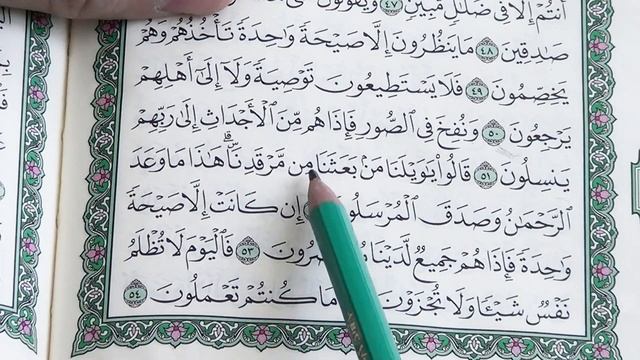 أَنتُمْ إِلَّا فِى ضَلَٰلٍ مُّبِينٍ ٤٧ وَيَقُولُونَ
صَٰدِقِينَ ٤٨ مَا يَنظُرُونَ إِلَّا صَيْحَةً وَٰحِدَةً تَأْخُذُهُمْ وَهُمْ
يَخِصِّمُونَ ٤٩ فَلَا يَسْتَطِيعُونَ تَوْصِيَةً وَلَآ إِلَىٰٓ أَهْلِهِمْ
يَرْجِعُونَ ٥٠ وَنُفِخَ فِى ٱلصُّورِ فَإِذَا هُم مِّنَ ٱلْأَجْدَاثِ إِلَىٰ رَبِّهِمْ
يَنسِلُونَ ٥١ قَالُوا۟ يَٰوَيْلَنَا مَنۢ بَعَثَنَا مِن مَّرْقَدِنَا ۜ ۗ هَٰذَا مَا وَعَدَ
ٱلرَّحْمَٰنُ وَصَدَقَ ٱلْمُرْسَلُونَ إِن كَانَتْ إِلَّا صَيْحَةً
وَٰحِدَةً فَإِذَا هُمْ جَمِيعٌ لَّدَيْنَا ٥٣ فَٱلْيَوْمَ لَا تُظْلَمُ
نَفْسٌ شَيْـًٔا وَلَا تُجْزَوْنَ مَا كُنتُمْ تَعْمَلُونَ ٥٤